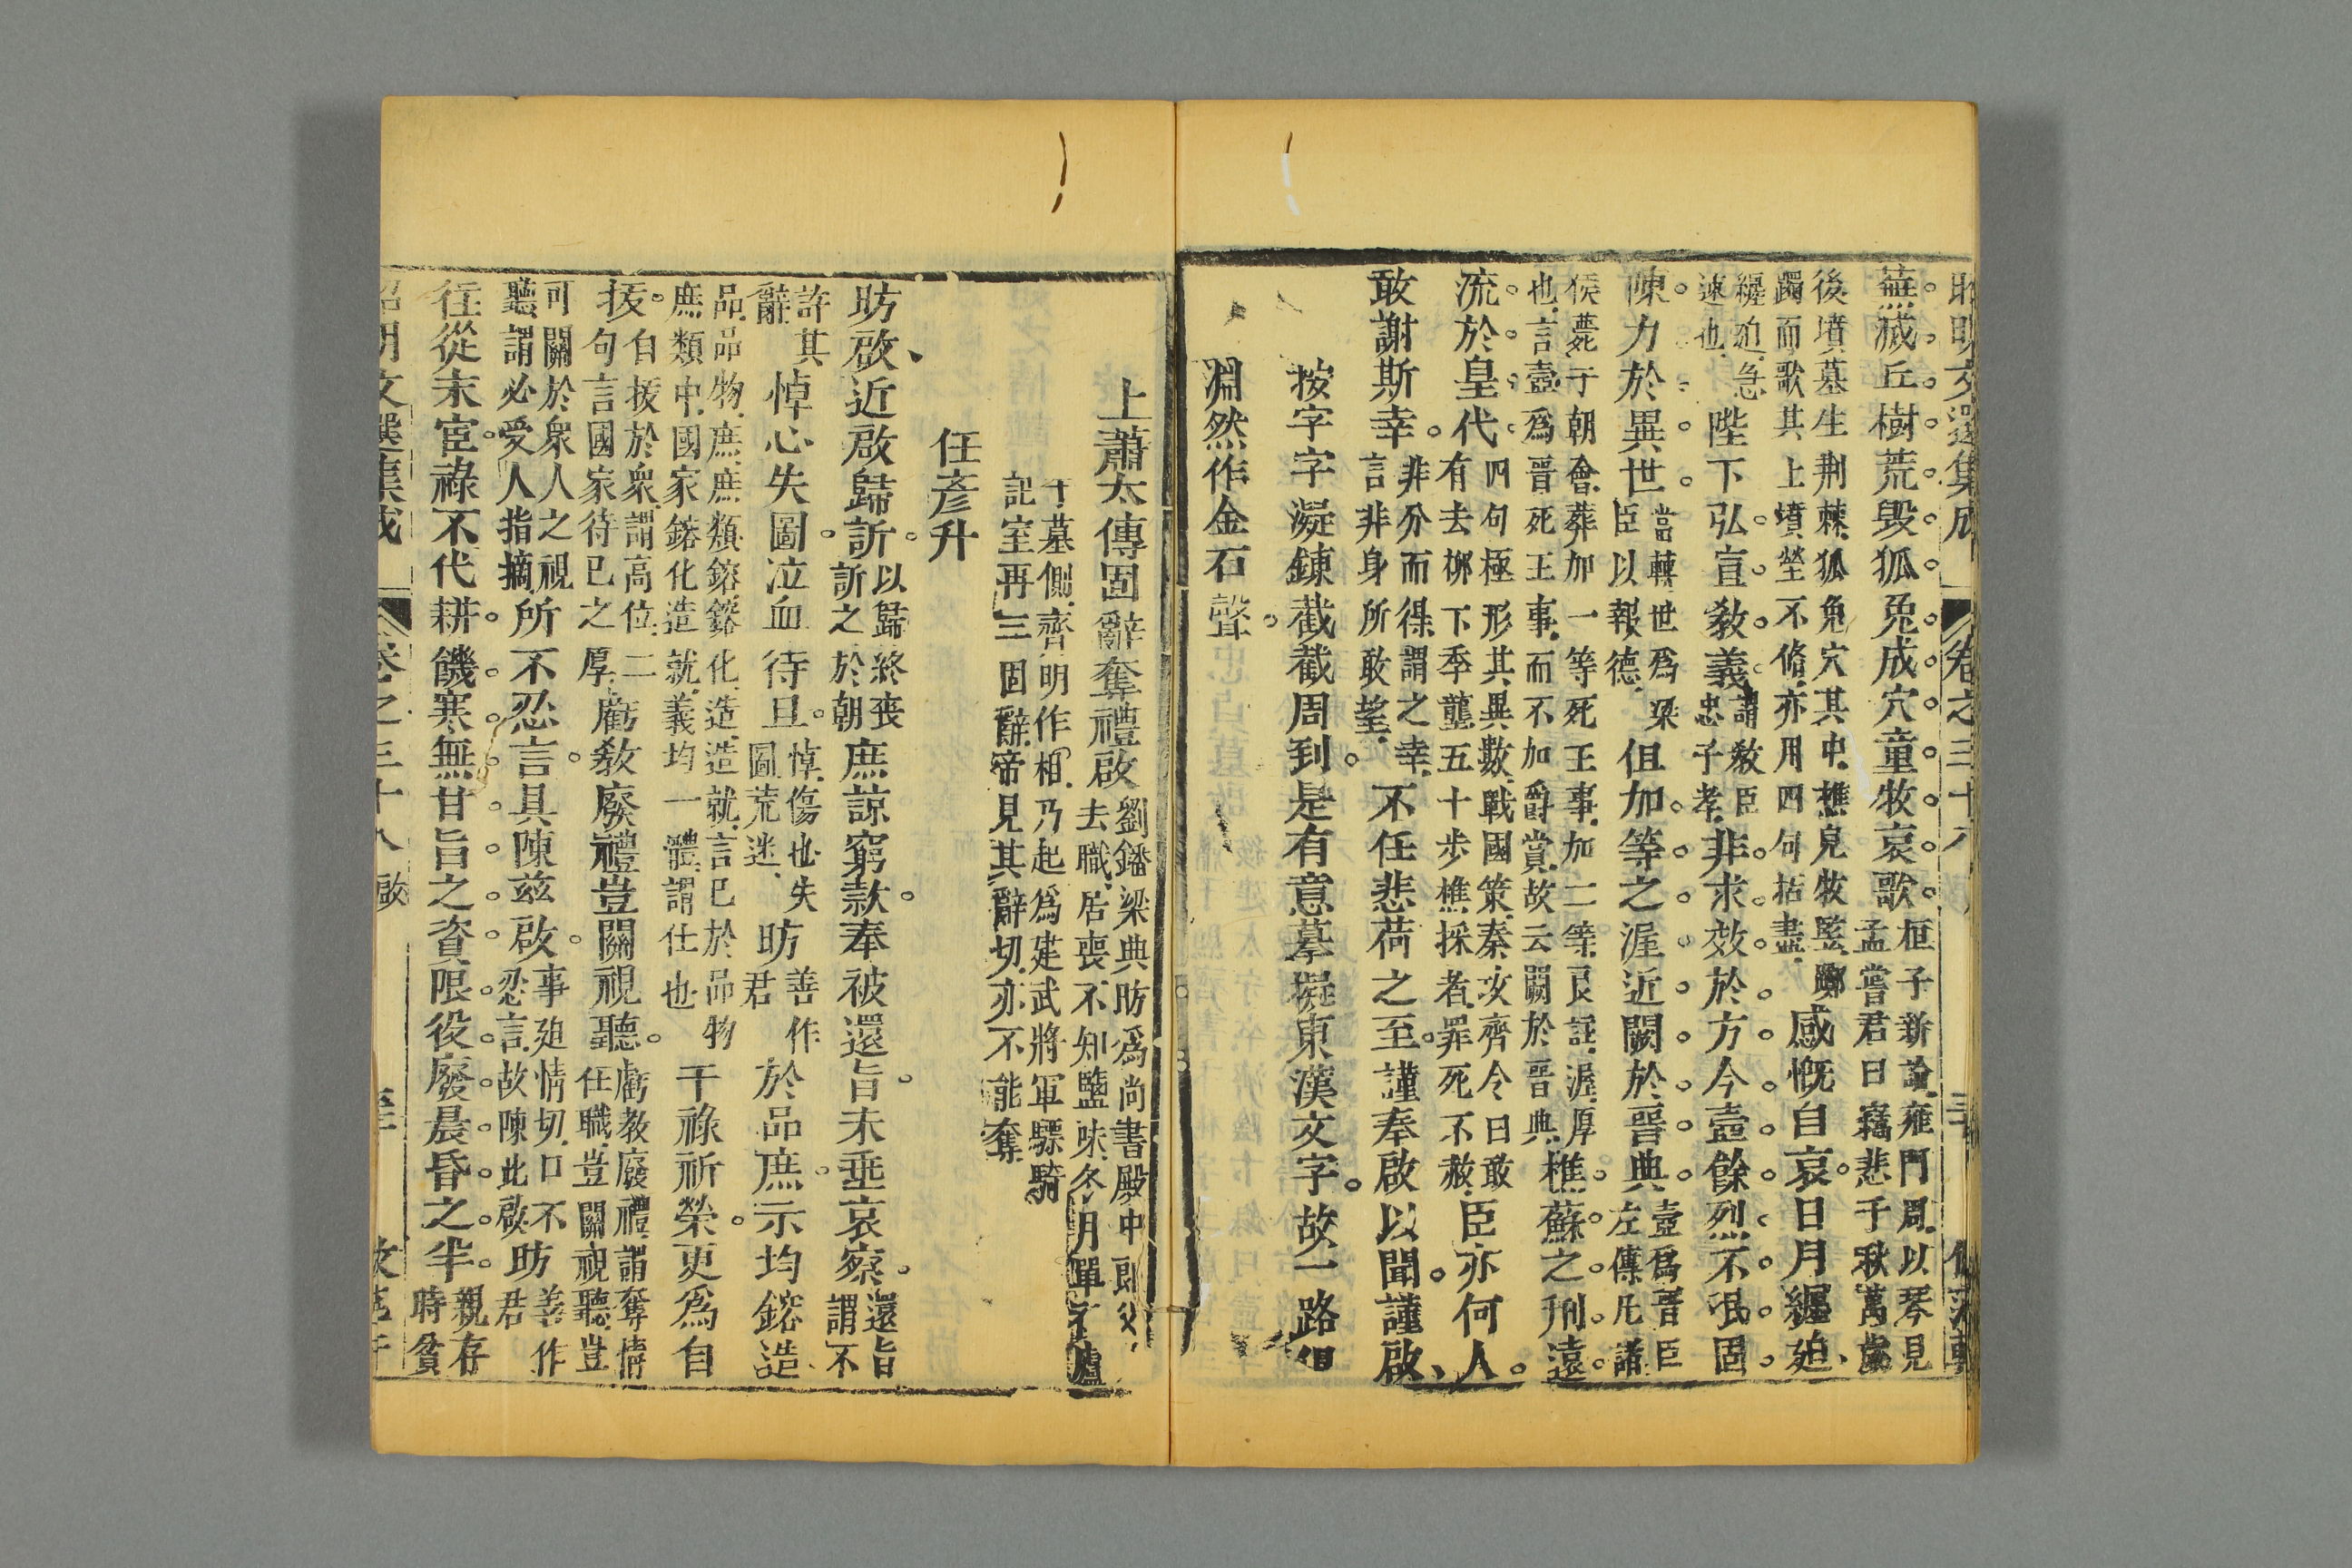 昭明文選集成 卷之三十八
蕪穢丘樹荒毁狐兎成穴童牧哀歌桓子新論雍門周以琴見
孟嘗君曰竊悲千秋萬歲
後墳墓生荆棘狐兔穴其中樵兒牧豎躑
躅而歌其上墳塋不脩亦用四句拈盡感慨自哀日月纒廹
纒廹急
速也陛下弘宣敎義謂敎臣
忠子孝非求效於方今壼餘烈不泯固
陳力於異世當轉世爲梁
臣以報德但加等之渥近闕於晉典壼爲晉臣
左傳凡諸
侯薨于朝會葬加一等死王事加二等良註渥厚
也言壼爲晉死王事而不加爵賞故云闕於晉典樵蘇之刑遠
流於皇代四句極形其異數戰國策秦攻齊令曰敢
有去栁下季壟五十步樵採者罪死不赦臣亦何人
敢謝斯幸非分而得謂之幸
言非身所敢望不任悲荷之至謹奉啟以聞謹啟
按字字凝鍊截截周到是有意摹擬東漢文字故一路俱
淵然作金石聲
上蕭太傅固辭奪禮啟劉璠梁典昉爲尚書殿中郎父
去職居喪不知鹽味冬月單衣廬
于墓側齊明作相乃起爲建武將軍驃騎
記室再三固辭帝見其辭切亦不能奪
任彥升
昉啟近啟歸訢以歸終喪
訢之於朝庶諒窮款奉被還旨未垂哀察還旨
謂不
許其
辭悼心失圖泣血待旦悼傷也失
圖荒迷昉善作
君於品庶示均鎔造
品品物庶庶類鎔鎔化造造就言已於品物
庶類中國家鎔化造就義均一體謂仕也干祿祈榮更爲自
拔自拔於衆謂高位二
句言國家待已之厚虧敎廢禮豈關視聽虧教廢禮謂奪情
任職豈關視聽豈
可關於衆人之視
聽謂必受人指摘所不忍言具陳兹啟事廹情切口不
忍言故陳此啟昉善作
君
往從末宦祿不代耕饑寒無甘旨之資限役廢晨昏之半親存
時貧
昭明文選集成 卷之三十八 啟